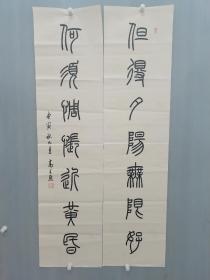 但得夕陽無限好
何須惆悵近黃昏